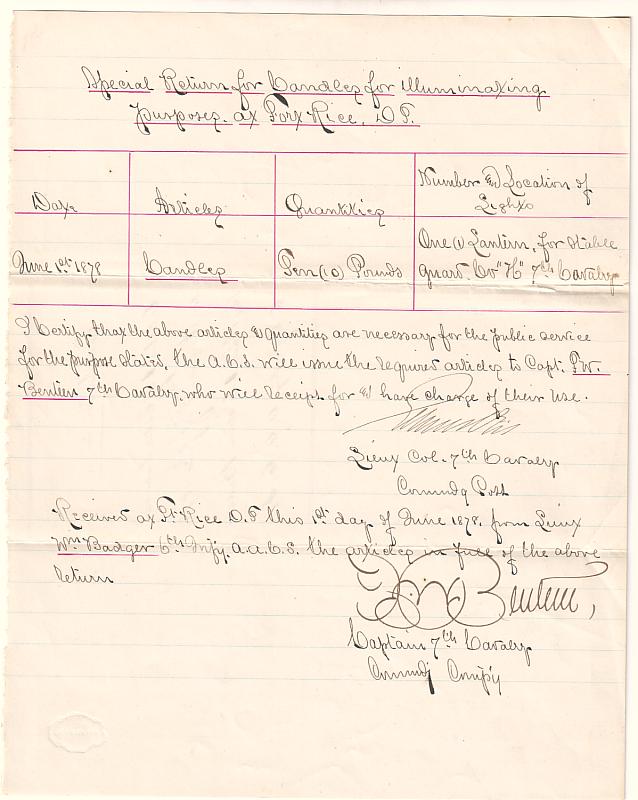 Special Return for Candles for illuminating
purposes. at Fort Rice, D.T.
Date
Articles
Quantities
Number & Location of
Lights
June 1st 1878
Candles
Ten (10) Pounds
One (1) Lantern, for Stable
guard. Co "H" 7th Cavalry
I Certify that the above articles & Quantities are necessary for the public service
for the purpose stated, the A.C.S. will issue the required articles to Capt. F.W.
Benteen 7th Cavalry, who will receipt for & have charge of their use.
Lieut Col. 7th Cavalry
Commdg Post
Received at Ft. Rice D.T. this 1st day of June 1878. from Lieut
Wm Badger 6th Infty. A.A.C.S. the articles in full of the above
return
F.W. Benteen,
Captain 7th Cavalry
Commdg Compy